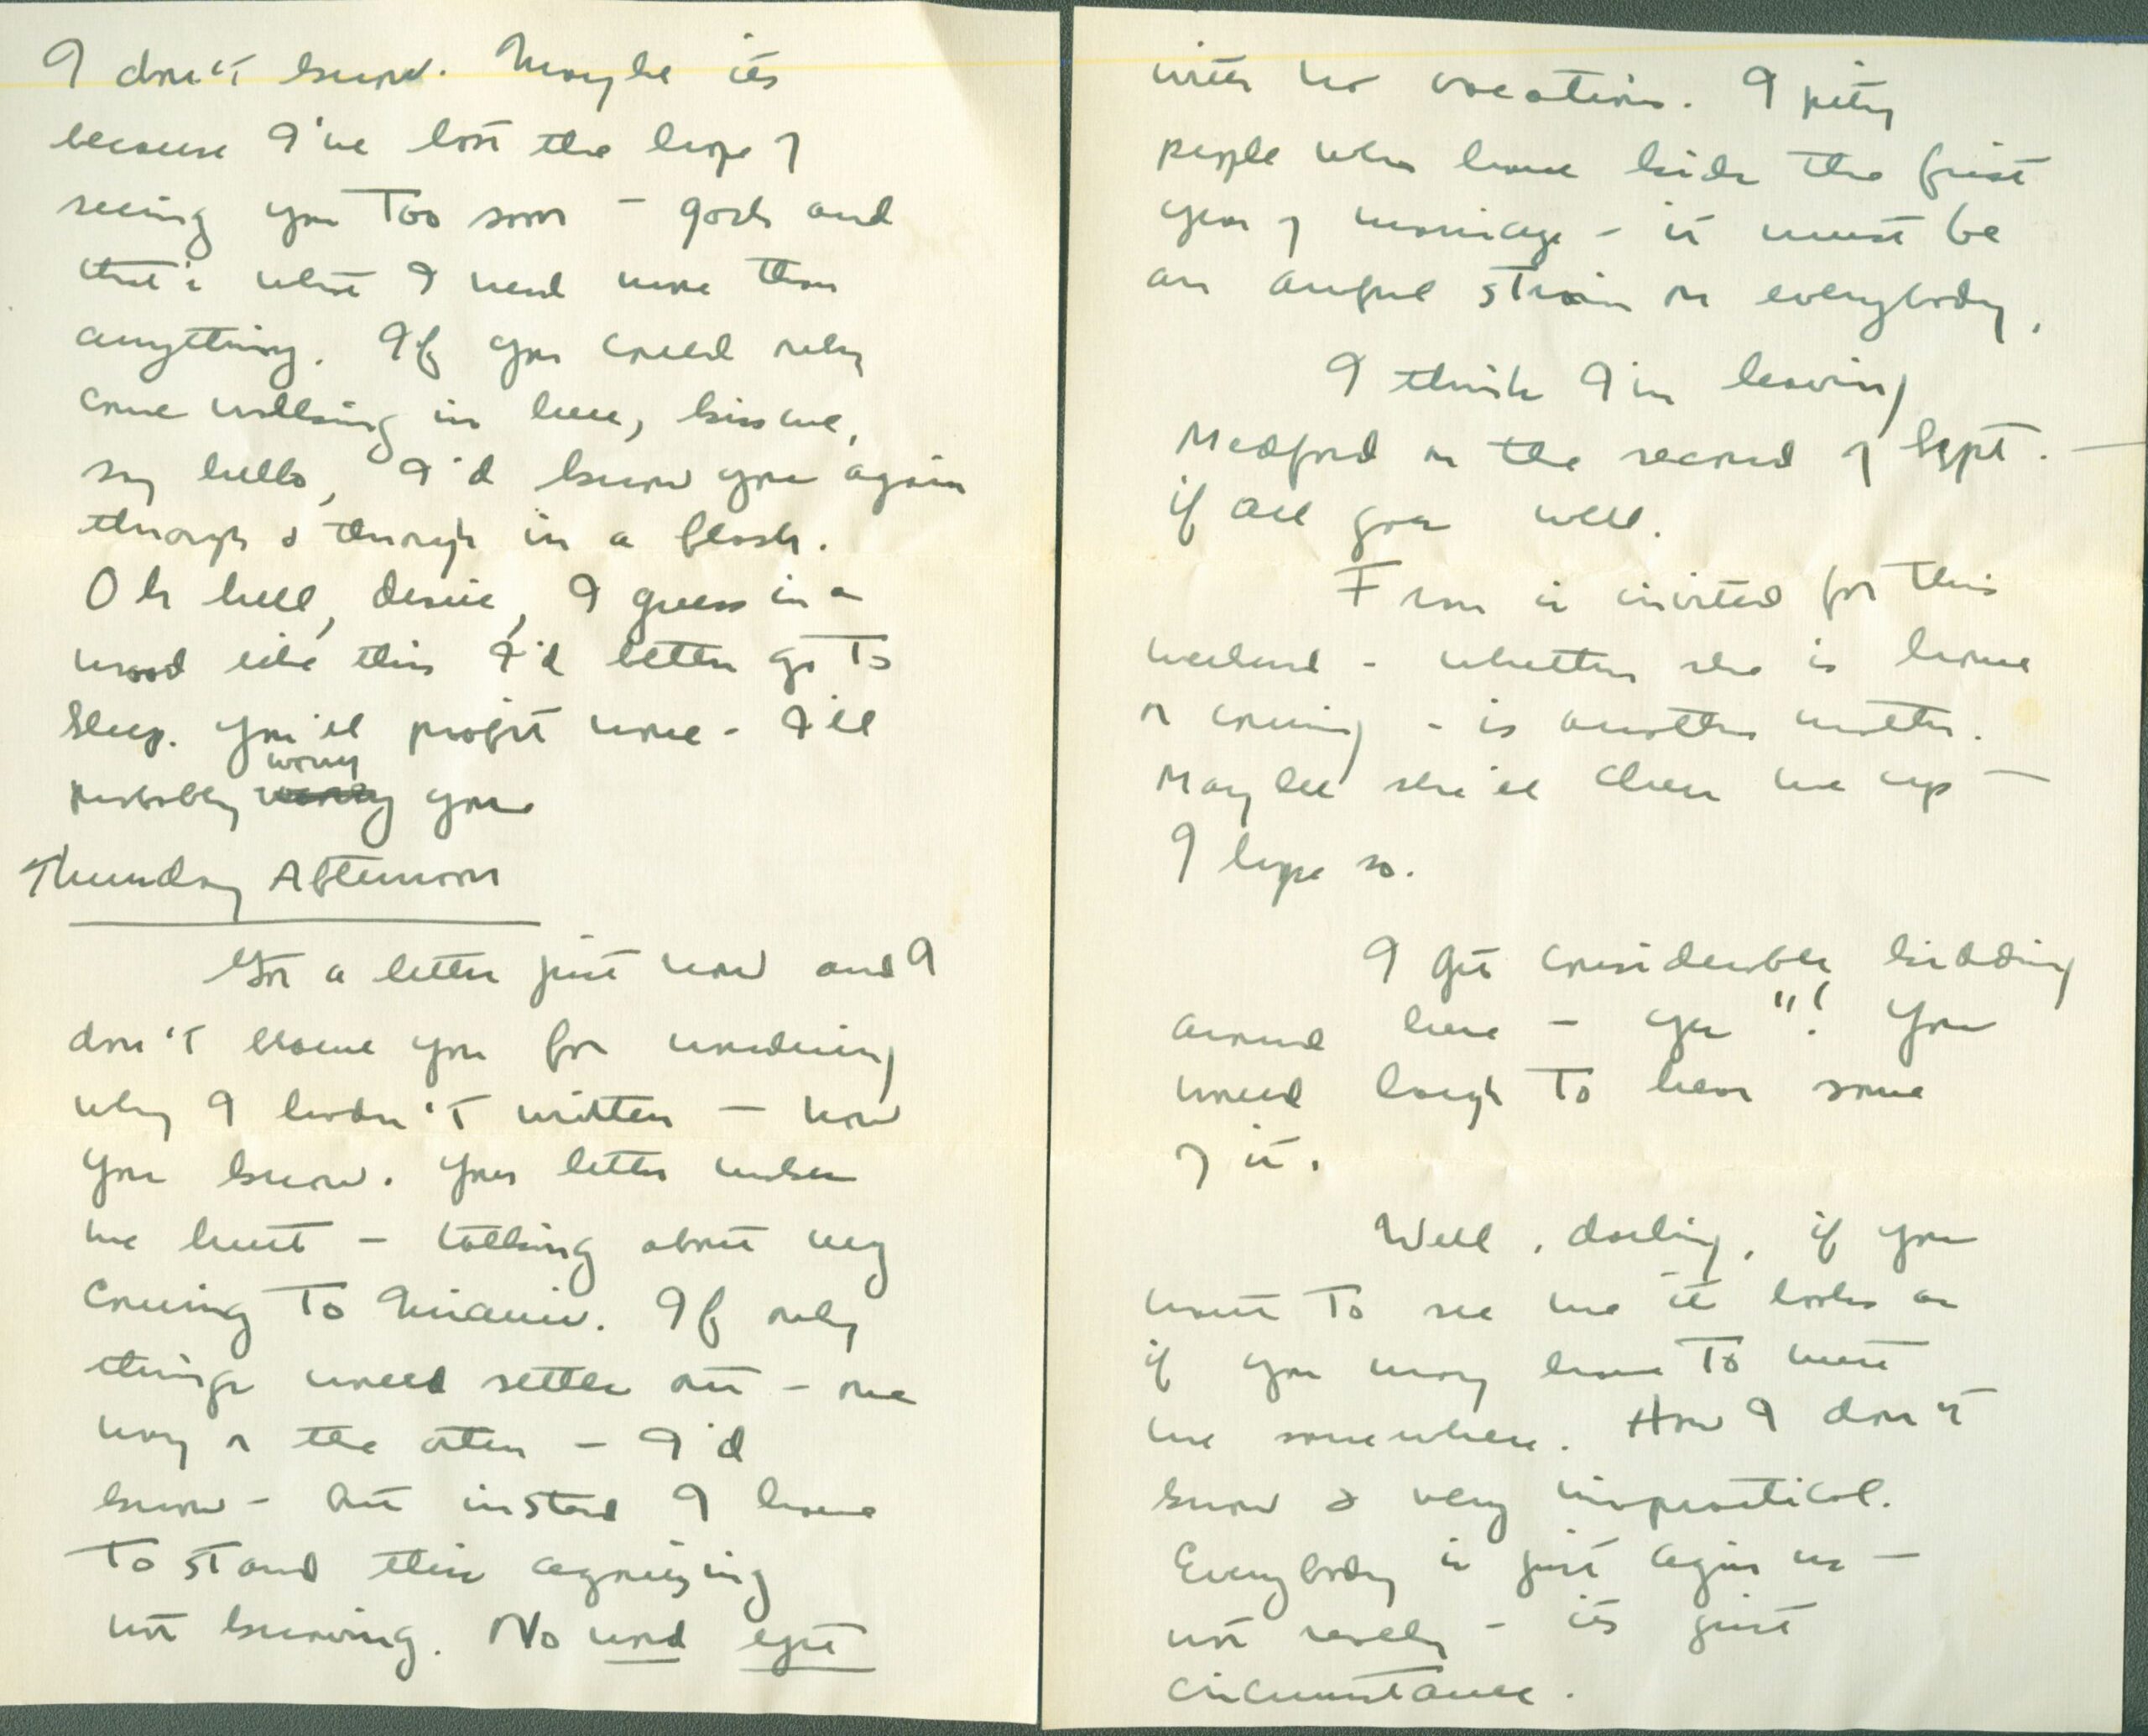 I don't know. Maybe its
because I've lost the hope of
seeing you too soon - gosh and
that's what I need more than
anything. If you could only
come walking in here, kiss me,
say hello, I'd know you again
through & through in a flash.
Oh hell, dearie, I guess in a
mood like this I'd better go to
sleep. You'll profit none - I'll
probably worry you
Thursday Afternoon
Got a letter just now and I
don't blame you for wondering
why I hadn't written - now
you know. Your letter makes
me hurt - talking about my
coming to Miami. If only
things would settle out - one
way or the other - I'd
know - but instead I have
to stand this agonizing
not knowing. No word yet
with no vacation. I pity
people who have kids the first
year of marriage - it must be
an awful strain on everybody.
I think I'm leaving
Medford on the second of Sept. -
if all goes well.
Fran is invited for this
weekend - whether she is home
or coming - is another matter.
Maybe she'll cheer me up -
I hope so.
I get considerable kidding
around here - yes "! You
would laugh to hear some
of it.
Well, darling, if you
want to see me it looks as
if you may have to meet
me somewhere. How I don't
know & very impractical.
Everybody is just agin us -
not really - its just
circumstance.